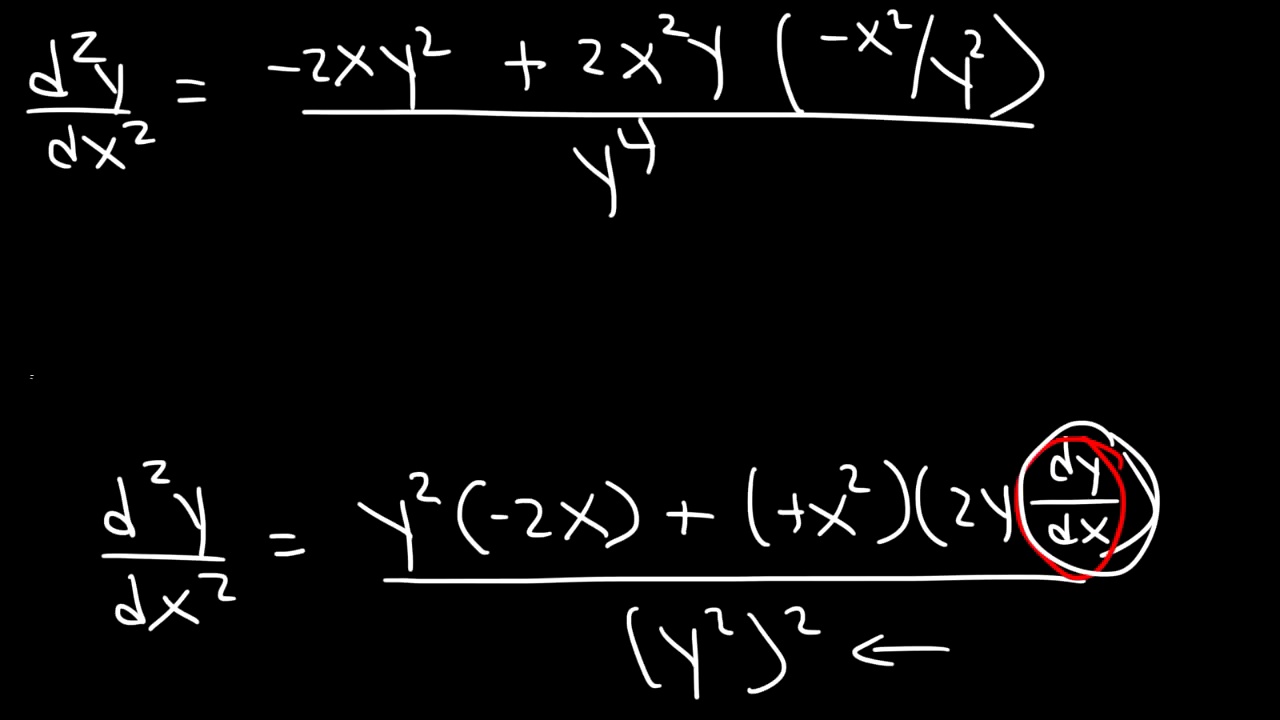 d²y/dx² = (-2xy² + 2x²y (-x²/y²))/y⁴
d²y/dx² = (y²(-2x) + (+x²)(2y dy/dx))/(y²)² ←